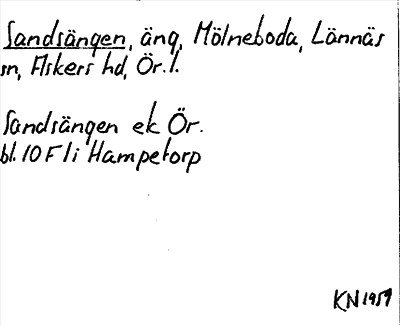 Sandsängen, äng, Mölneboda, Lännäs
sn, Askers hd, Ör. l.
Sandsängen ek Ör.
bl. 10 F 1 i Hampetorp
KN 1959